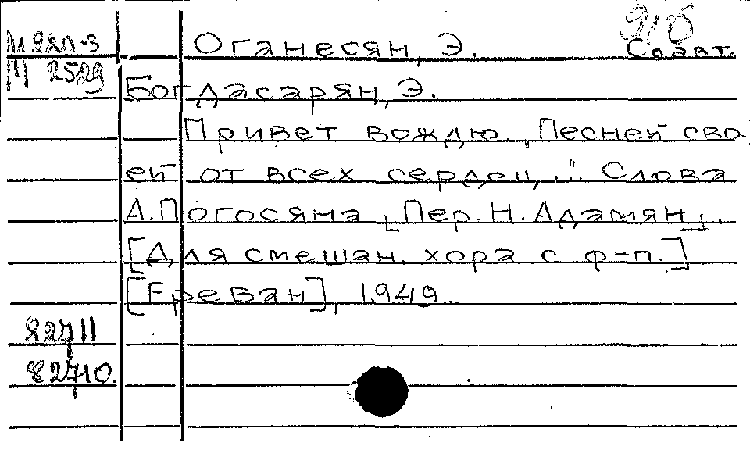 915
М 220-3 Оганесян, Э. Соавт.
М 2529
Богдасарян, Э.
Привет вождю. „Песней сво
ей от всех сердец..." Слова
А.Погосяна [Пер. Н. Адамян].
[Для смешан. хора с ф-п.]
[Ереван], 1949.
82711
82710.